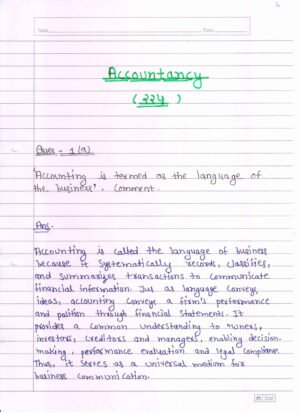 Topic
Date
Accountancy
(224)
Ques - 1(a)
Accounting is termed as the language of
the business'. Comment.
Ans.
Accounting is called the language of business
because it systematically records, classifies,
and summarizes transactions to communicate
financial information. Jus as language conveys
ideas, accounting conveys a firm's performance
and position through financial statements. It
provides a common understanding to owners,
investors, creditors and managers, enabling decision-
making, performance evaluation and legal compliance.
Thus, it serves as a universal medium for
business communication.